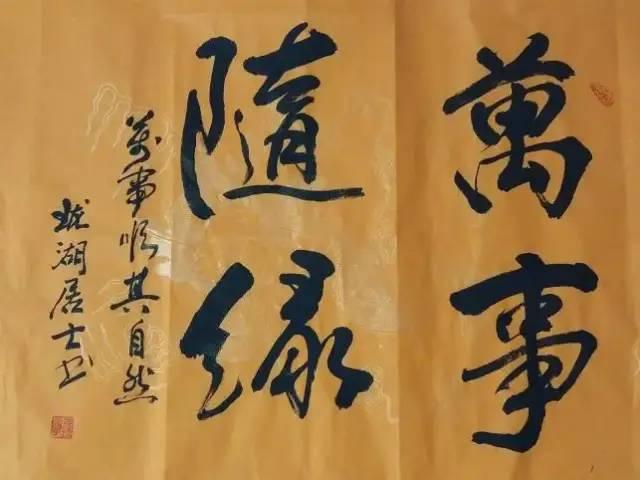 萬事
隨緣
萬事順其自然
湖居士书